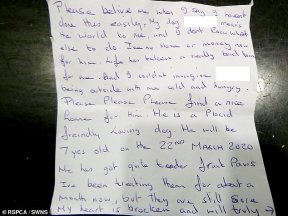 Please belive me when I say I havent
done this easily. My dog means
the world to me and I dont know what
else to do. I've no home or money now
for him. Life has taken a really bad turn
for me. And I couldnt imagine
being outside with me cold and hungry.
Please Please Please find a nice
home for him. He is a Placid
friendly loving dog. He will be
7 yes old on the 22nd March 2020.
He has got quite tender front Paws
I've been treating them for about a
month now, but they are still sore
My heart is broken and will truly →
© RSPCA / SWNS